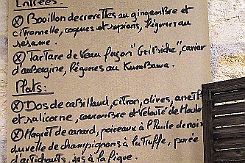 Entrées:
Ⓧ Bouillon de crevettes au gingembre et
citronnelle, coques et crépions, légumes au
sésame.
Ⓧ Tartare de Veau façon "Gribiche", caviar
d'aubergine, légumes au Kumbawa.
Plats:
Ⓧ Dos de cabillaud, citron, olives, aneth
et salicorne, concombre et Velouté de
Ⓧ Magret de canard, poireaux à l'huile de
de champignons à la truffe, purée
d'artichauts, jus à la figue.